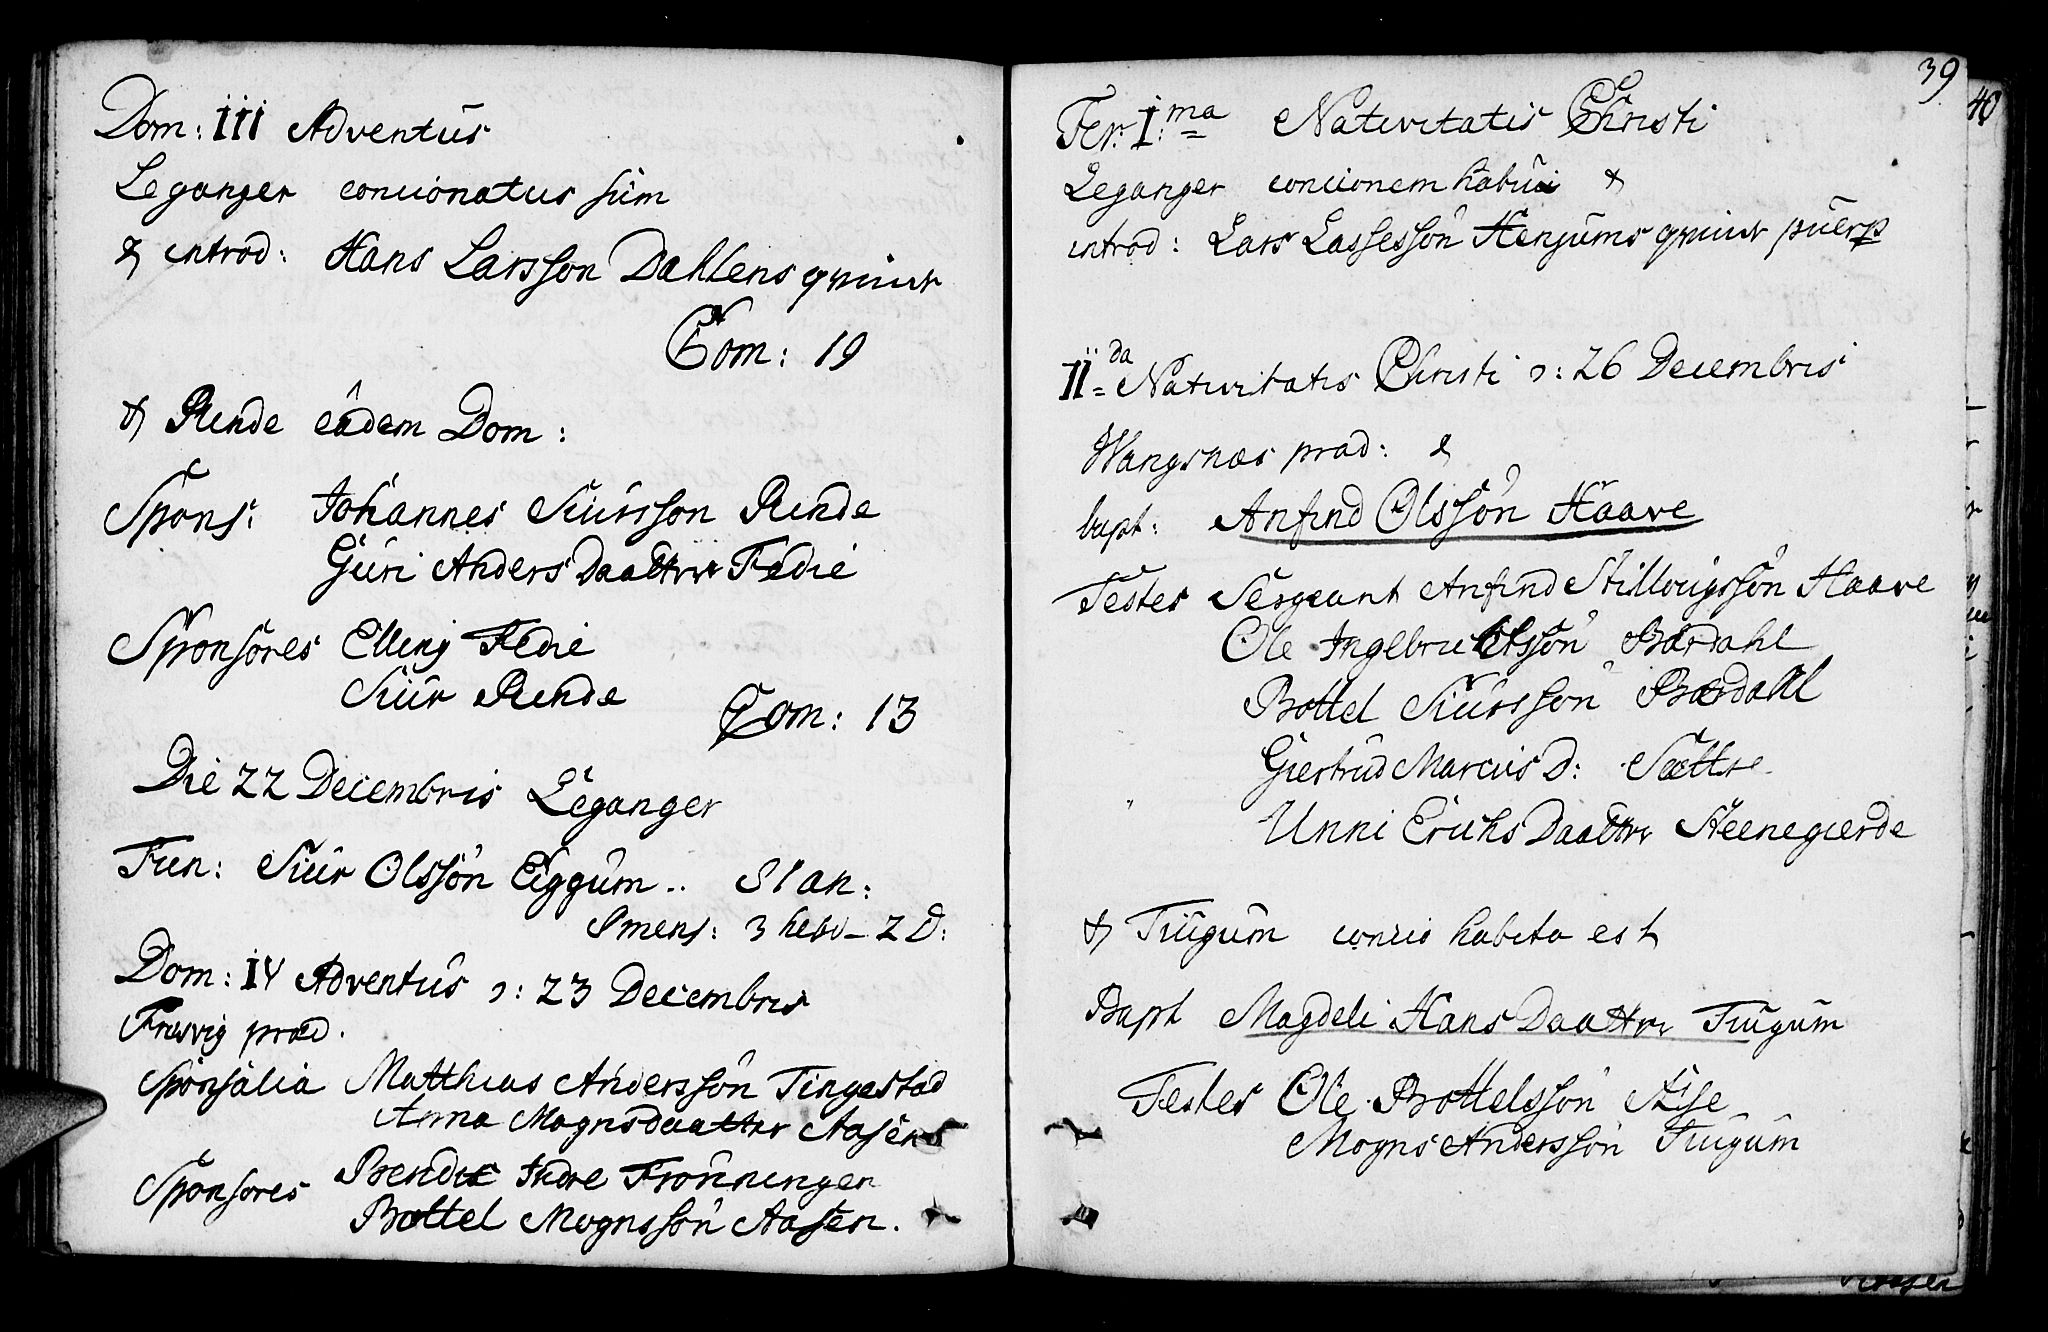 Dom: III Adventûs
Leganger concionatus sûm
& introd: Hans Larsson Dahlens qvinde
Com: 19
& Rinde eâdem Dom:
Spons: Johannes Siûrsson Rinde
Gûri Anders Daatter Fedie
Sponsores Elling Fedie
Siûr Rinde
Com: 13
Die 22 Decembris Leganger
Fun: Siûr Olssôn Eggûm .. 81 an:
8 mens: 3 hebd_ 2 D:
Dom: IV Adventûs ɔ: 23 Decembris
Fresvig præd.
Sponsalia Matthias Anderssôn Tingastad
Anna Mognsdaatter Aasen
Sponsores Bendix Indre Frônningen
Bottel Mognssôn Aasen.
39
Fer: I:ma Nativitatis Christi
Leganger concionem habui &
introd: Lars Lassessôn Henjûms qvinde puerp
II=da Nativitatis Christi ɔ: 26 Decembris
Wangsnæs præd: &
bapt: Anfind Olssôn Haave
Testes Sergeant Anfind Stillougssôn Haave
Ole Ingelbrichtssôn Bærdahl
Bottel Siûrssôn Bærdahl
Giertrûd Marcus D: Sættre
Unni Erichs Daatter Steenegierde
& Tiugûm concio habita est
Bapt Magdeli Hans Daatter Tiugûm
Testes Ole Bottelssôn Aße
Mogns Anderssôn Tiugûm
40